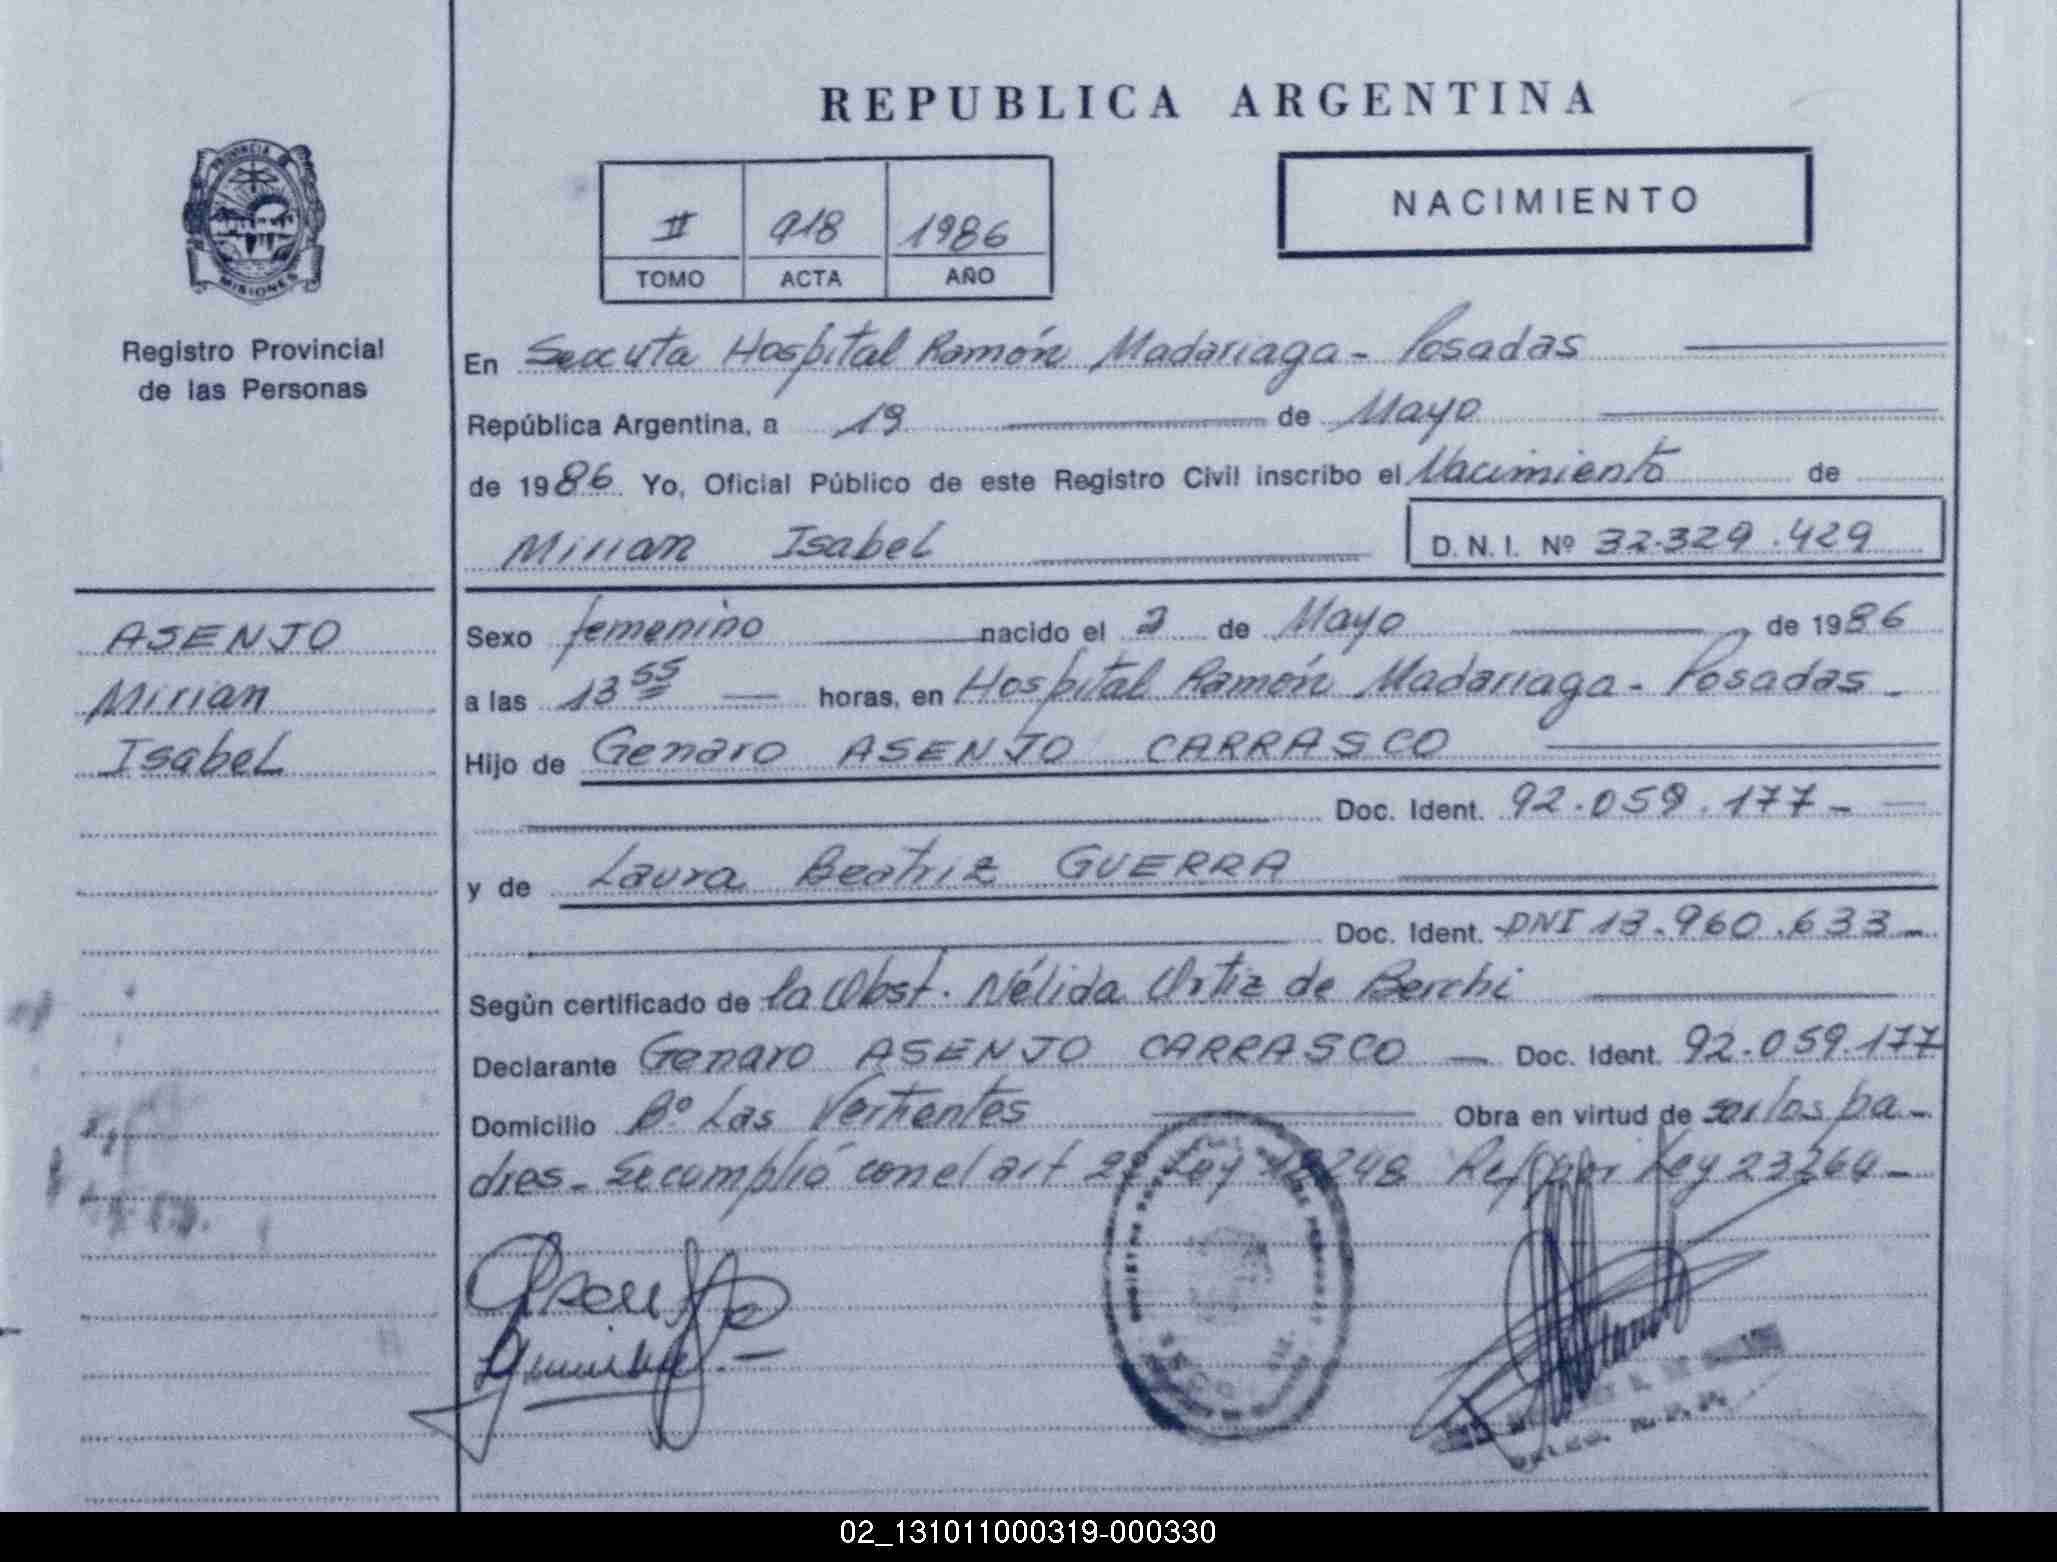 REPUBLICA ARGENTINA
PROVINCIA DE
MISIONES
Registro Provincial
de las Personas
II 918 1986
TOMO ACTA AÑO
NACIMIENTO
En Hospital Ramón Madariaga - Posadas
República Argentina, a 19 de Mayo
de 1986 Yo, Oficial Público de este Registro Civil inscribo el Nacimiento de
Mirian Isabel D.N.I. Nº 32.329.429
ASENJO
Mirian
Isabel
Sexo femenino nacido el 2 de Mayo de 1986
a las 13 55 horas, en Hospital Ramón Madariaga - Posadas -
Hijo de Genaro ASENJO CARRASCO
Doc. Ident. 92.059.177 -
y de Laura Beatriz GUERRA
Doc. Ident. DNI 13.960.633 -
Según certificado de la Obst. Nélida Ortiz de Berchi
Declarante Genaro ASENJO CARRASCO Doc. Ident. 92.059.177
Domicilio Bº Las Vertientes Obra en virtud de ser los pa-
dres - Se cumplió con el art 2º Ley 18248 Ref por Ley 23264 -
02_131011000319-000330